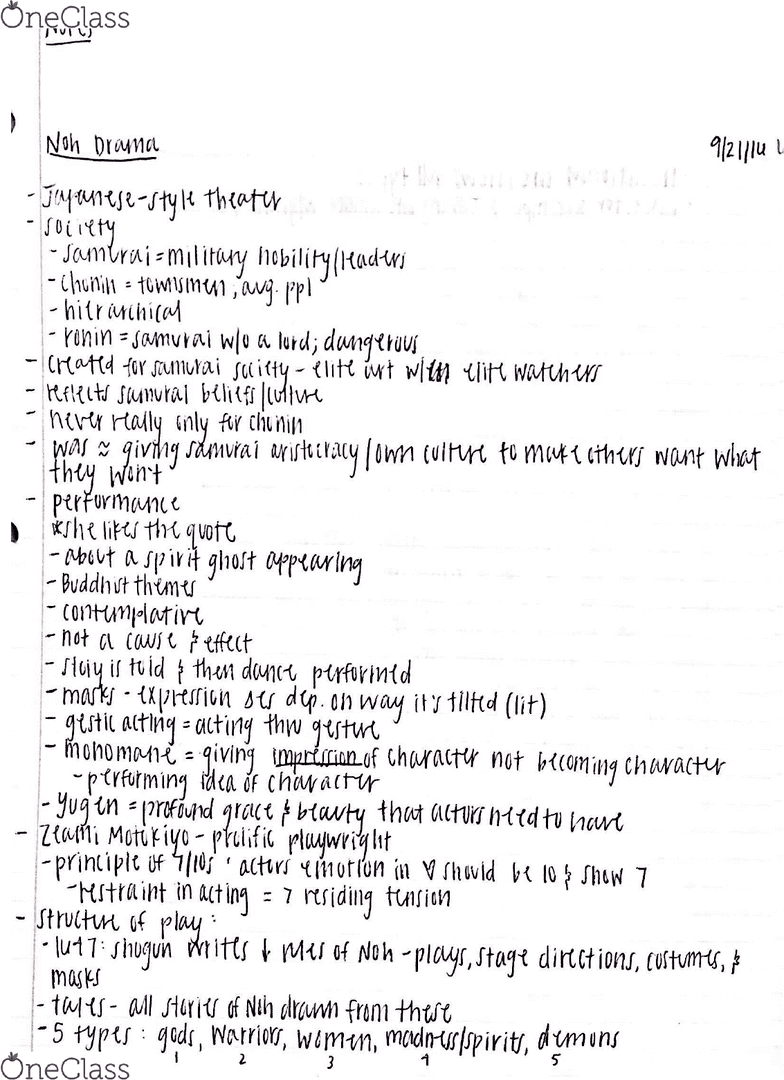 OneClass
Notes
Noh Drama
9/21/16
- Japanese-style theater
- society
- samurai = military nobility/leaders
- chonin = townsmen, avg. ppl
- hierarchical
- ronin = samurai w/o a lord; dangerous
- created for samurai society - elite art w/ elite watchers
- reflects samurai beliefs/culture
- never really only for chonin
- was ≈ giving samurai aristocracy/own culture to make others want what
they won't
- performance
*she likes the quote
- about a spirit ghost appearing
- Buddhist themes
- contemplative
- not a cause & effect
- story is told & then dance performed
- masks - expression dep. on way it's tilted (lit)
- gestic acting = acting thru gesture
- monomane = giving impression of character not becoming character
- performing idea of character
- yugen = profound grace & beauty that actors need to have
- Zeami Motokiyo - prolific playwright
- principle of 7/10s: actors emotion in ♡ should be 10 & show 7
- restraint in acting = residing tension
- structure of play:
- 1647: shogun writes ↓ rules of Noh - plays, stage directions, costumes, &
masks
- tales - all stories of Noh drawn from these
- 5 types: gods, warriors, women, madness/spirits, demons
1 2 3 4 5
OneClass